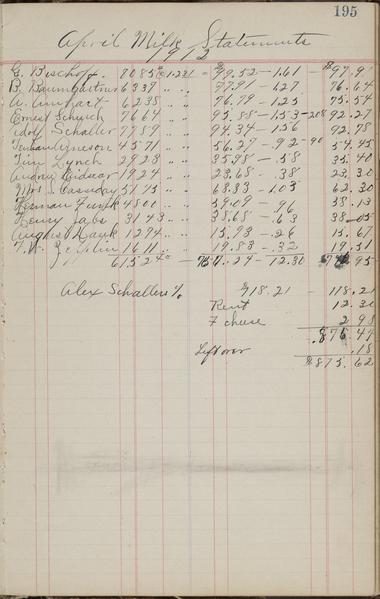 195
April Milk Statements
1912
G. Bischoff 8085 @ 1.221 = $ 99.52 - 1.61 - $ 97.91
B. Baumgartner 6339 " " 77.91 - 1.27 76.64
A. 6238 " " 76.79 - 1.25 75.54
Ernest Schurch 7664 " " 95.58 - 1.53 - 208 92.27
Adolf Schaller 7789 " " 94.34 - 1.56 92.78
4571 " " 56.27 - .92 - 90 54.45
Tim Lynch 2923 " " 35.98 - .58 35.40
Audrey Eidsar 1924 " " 23.68 - .38 23.30
Mrs. J. Cassiday 5175 " " 63.33 - 1.03 62.30
Herman Funk 4800 " " 59.09 - .96 58.13
Henry Jabs 3143 " " 38.68 - .63 38.05
August Hauk 1294 " " 15.93 - .26 15.67
F. W. Zepplin 1611 " " 19.83 - .32 19.51
61524 - 757.24 - 12.30 95
Alex Schallers % 718.21 - 118.21
Rent 12.30
7 cheese 2.98
875.44
Left over .18
$875.62